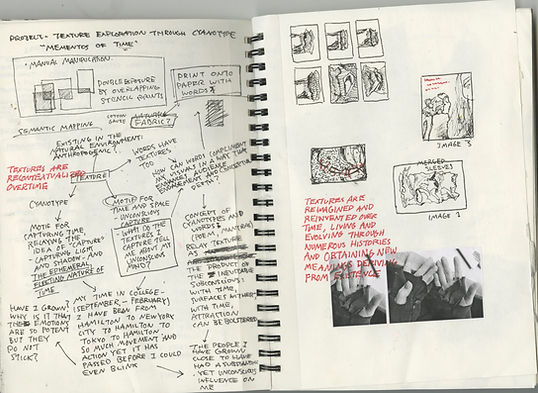 PROJECT - TEXTURE EXPLORATION THROUGH CYANOTYPE
"MEMENTOS OF TIME"
• MANUAL MANIPULATION
DOUBLE EXPOSURE
BY OVERLAPPING
STENCIL PRINTS
PRINT ONTO
PAPER WITH
WORDS?
SEMANTIC MAPPING
FABRIC?
EXISTING IN THE
NATURAL ENVIRONMENT:
ANTHROPOGENIC?
WORDS HAVE
TEXTURES
TOO
TEXTURES ARE
OVERTIME
TEXTURE
HOW CAN WORDS COMPLIMENT
MY VISUALS IN A WAY THAT
DEPTH?
CYANOTYPE
MOTIF FOR
CAPTURING TIME
RELAYING THE
IDEA OF "CAPTURE"
- CAPTURING LIGHT
AND SHADOW - AND
THE EPHEMERAL,
NATURE OF
TIME
MOTIF FOR TIME
AND SPACE
- UNCONSCIOUS
CAPTURE
- WHAT DO THE
TEXTURES I
CAPTURE TELL
ME ABOUT MY
UNCONSCIOUS
MIND?
CONCEPT OF
CYANOTYPES AND
WORDS:
RELAY TEXTURE
AS
THE PRODUCT OF
THE
SUBCONSCIOUS:
WITH TIME,
SURFACES WITHER
WITH TIME,
ATTRACTION
CAN BE BOLSTERED
HAVE I GROWN?
WHY IS IT THAT
THESE EMOTIONS
ARE SO POTENT
BUT THEY
DO NOT
STICK?
MY TIME IN COLLEGE -
(SEPTEMBER - FEBRUARY)
I HAVE BEEN FROM
HAMILTON TO NEW YORK
CITY TO HAMILTON TO
TOKYO TO HAMILTON.
SO MUCH MOVEMENT AND
ACTION YET IT HAS
PASSED BEFORE I COULD
EVEN BLINK
THE PEOPLE I
HAVE GROWN
CLOSE TO HAVE
HAD A SUBSTANTIAL
YET UNCONSCIOUS
INFLUENCE ON
ME
IMAGE 3
MERGED
SLEEVES
IMAGE 1
TEXTURES ARE
REIMAGINED AND
REINVENTED OVER
TIME, LIVING AND
EVOLVING THROUGH
NUMEROUS HISTORIES
AND OBTAINING NEW
MEANINGS DERIVING
FROM EXISTENCE